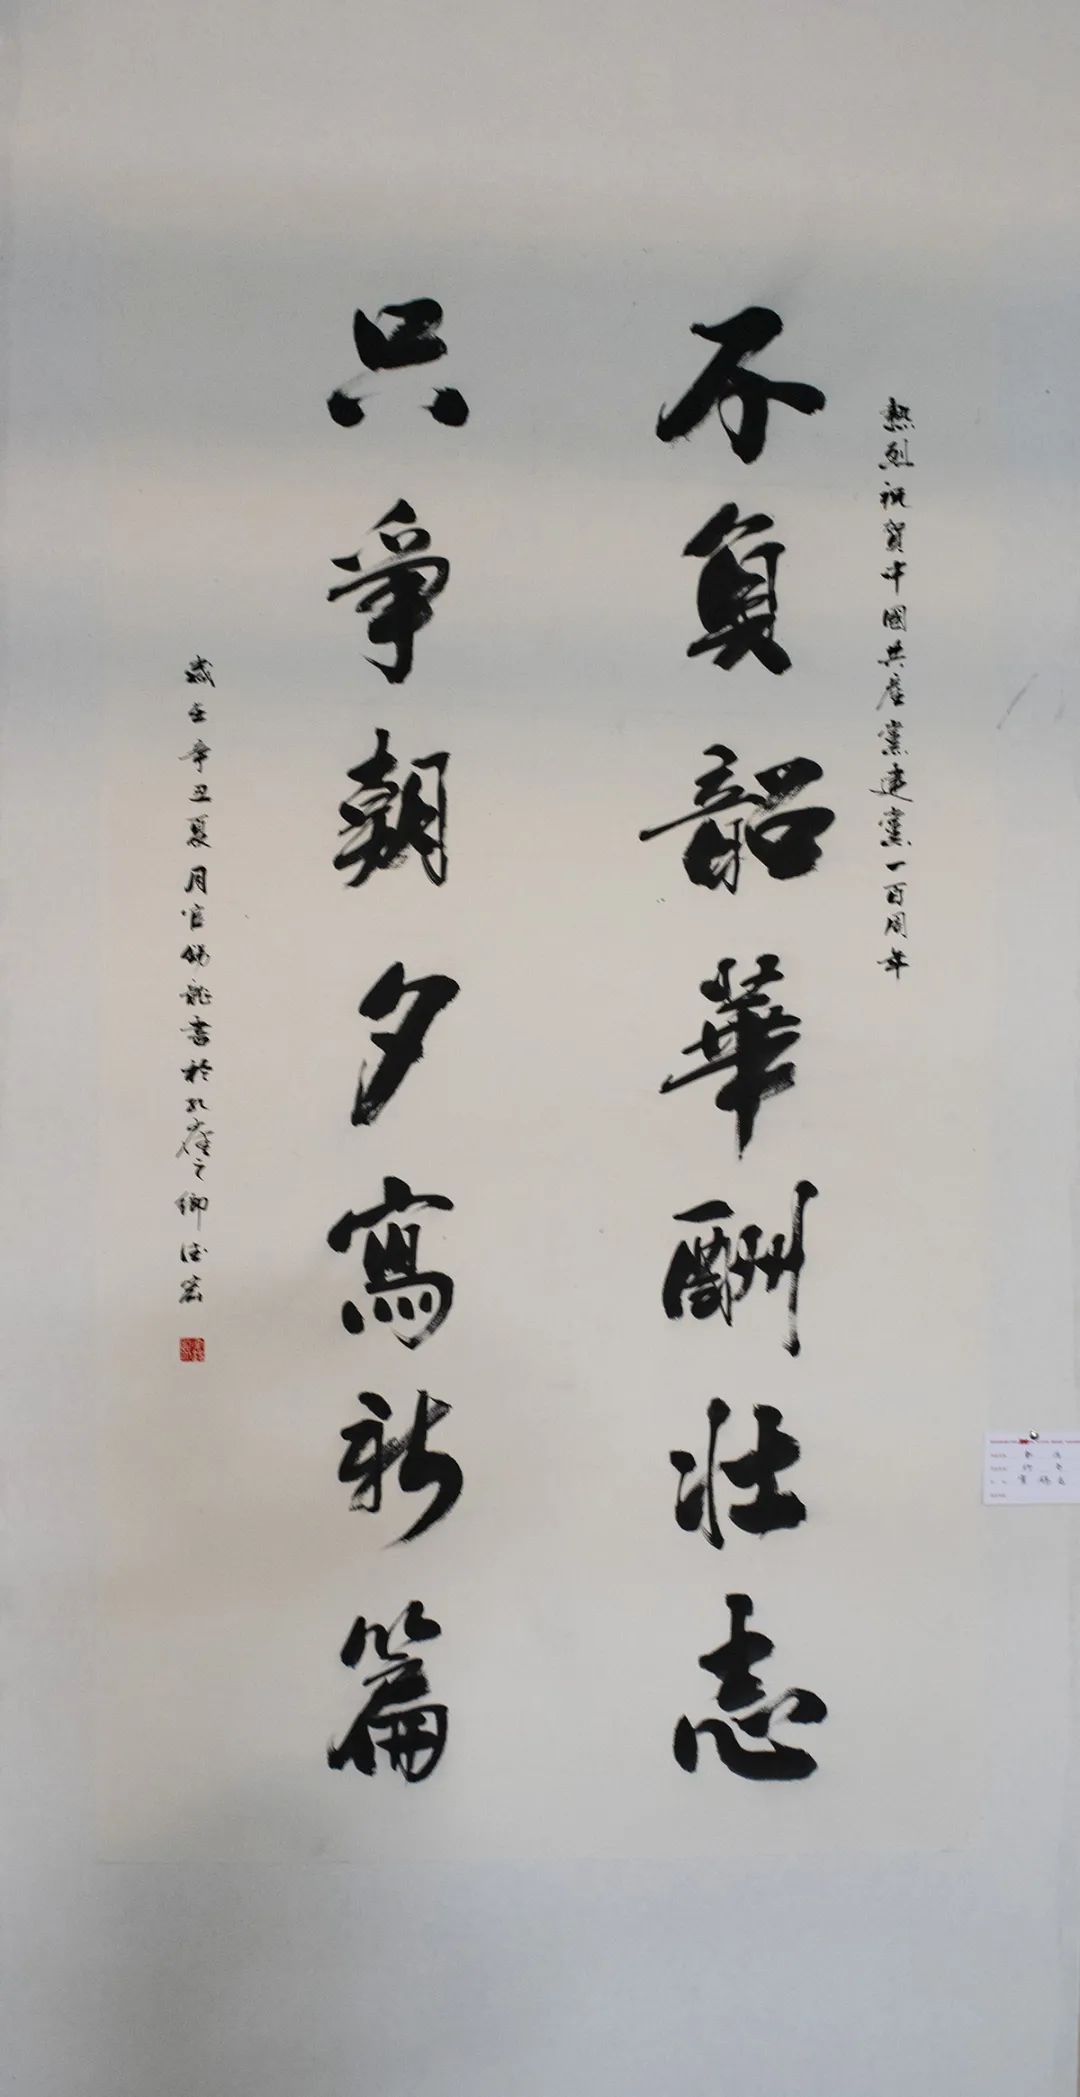 熱烈祝賀中國共產黨建黨一百周年
不負韶華酬壯志
只爭朝夕寫新篇
歲在辛丑夏月官錫龍書於孔